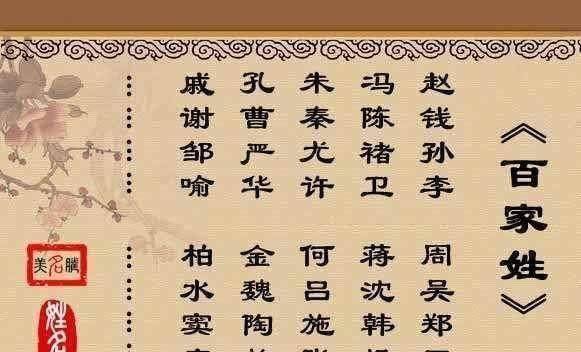 《百家姓》
赵钱孙李 周吴郑
冯陈褚卫 蒋沈韩
朱秦尤许 何吕施
孔曹严华 金魏陶
戚谢邹喻 柏水窦
…… ……
美名腾
姓名